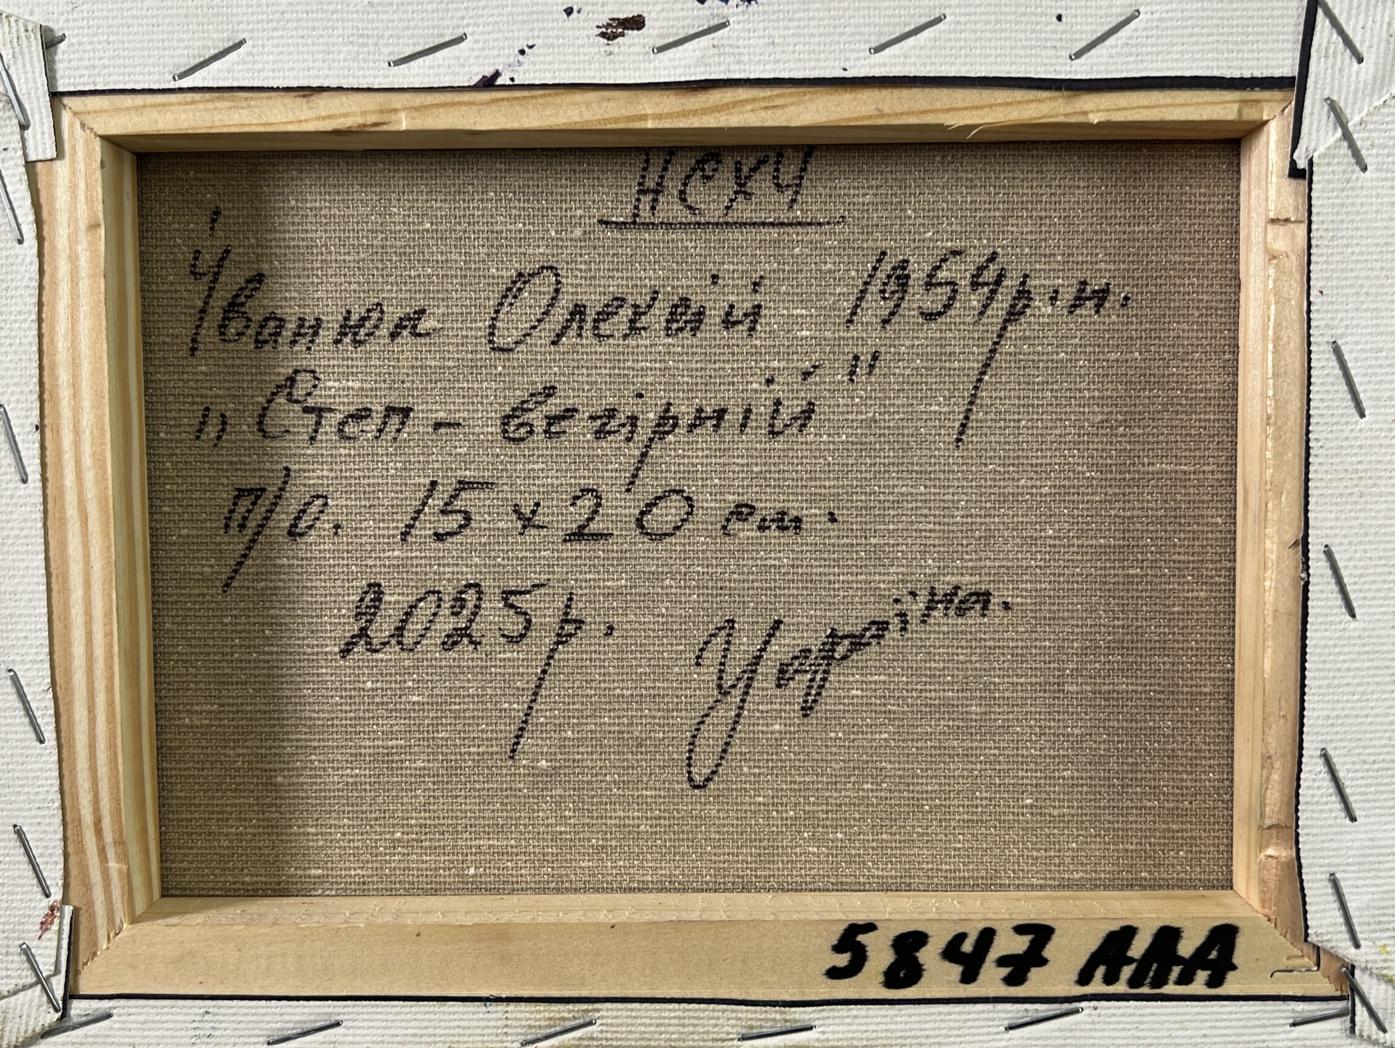 НСХУ
Іванюк Олексій 1954р.н.
„Степ - вечірній"
п/о. 15 x 20 см.
2025р. Україна.
5847 AAA